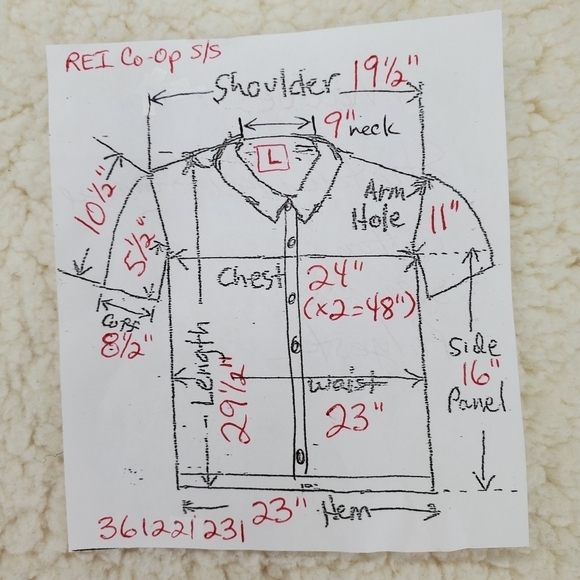 REI Co-Op S/S
Shoulder 19 1/2"
9" neck
L
10 1/2"
Arm
Hole
11"
5 1/2"
Chest
24"
(x2=48")
Cuff
8 1/2"
Length
29 1/2"
waist
23"
Side
16"
Panel
23" Hem
361221231